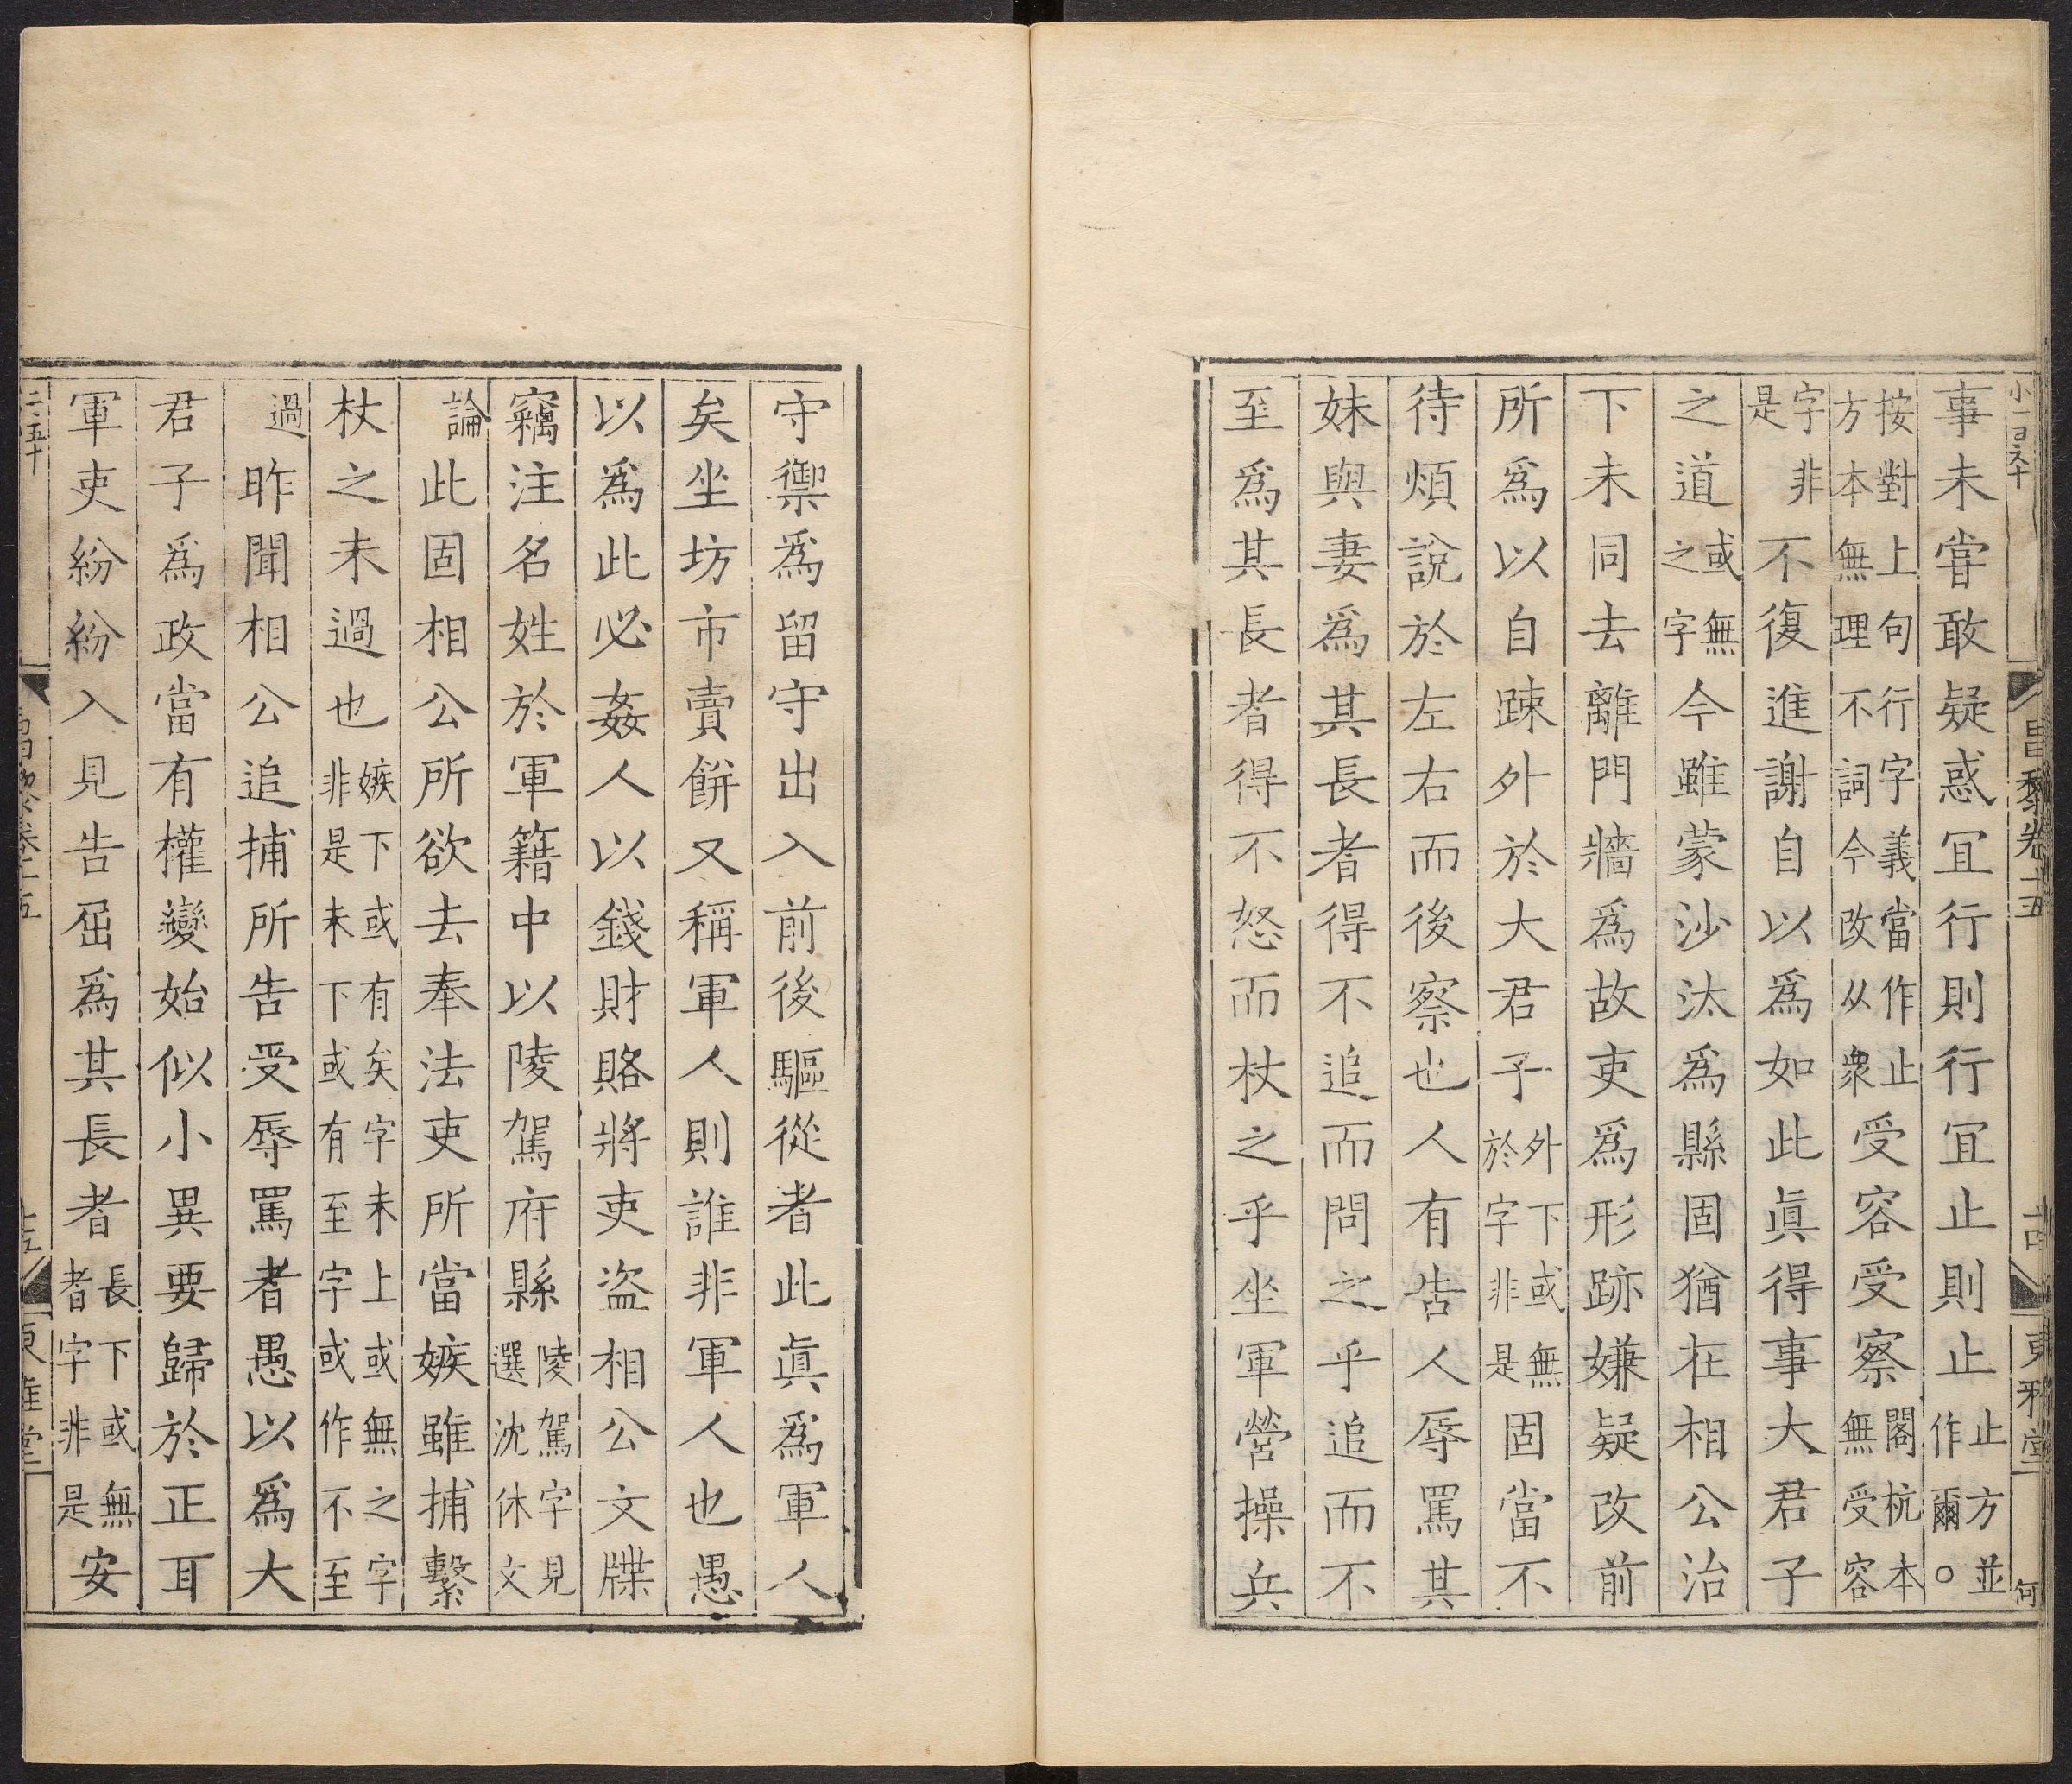 小一百六十 昌黎卷十五 十四 東雅堂 何
事未甞敢疑惑宜行則行宜止則止止方並作爾○
按對上句行字義當作止方本無理不詞今改从衆受容受察閣杭本無受容
字非是不復進謝自以爲如此眞得事大君子
之道或無之字今雖蒙沙汰爲縣固猶在相公治
下未同去離門牆爲故吏爲形跡嫌疑改前
所爲以自踈外於大君子外下或無於字非是固當不
待煩說於左右而後察也人有告人辱罵其
妹與妻爲其長者得不追而問之乎追而不
至爲其長者得不怒而杖之乎坐軍營操兵
守禦爲留守出入前後驅從者此眞爲軍人
矣坐坊市賣餅又稱軍人則誰非軍人也愚
以爲此必姦人以錢財賂將吏盗相公文牒
竊注名姓於軍籍中以陵駕府縣陵駕字見選沈休文
論此固相公所欲去奉法吏所當嫉雖捕繫
杖之未過也嫉下或有矣字未上或無之字非是未下或有至字或作不至
過昨聞相公追捕所告受辱罵者愚以爲大
君子爲政當有權變始似小異要歸於正耳
軍吏紛紛入見告屈爲其長者長下或無者字非是安
二五十 昌黎卷十五 十五 東雅堂